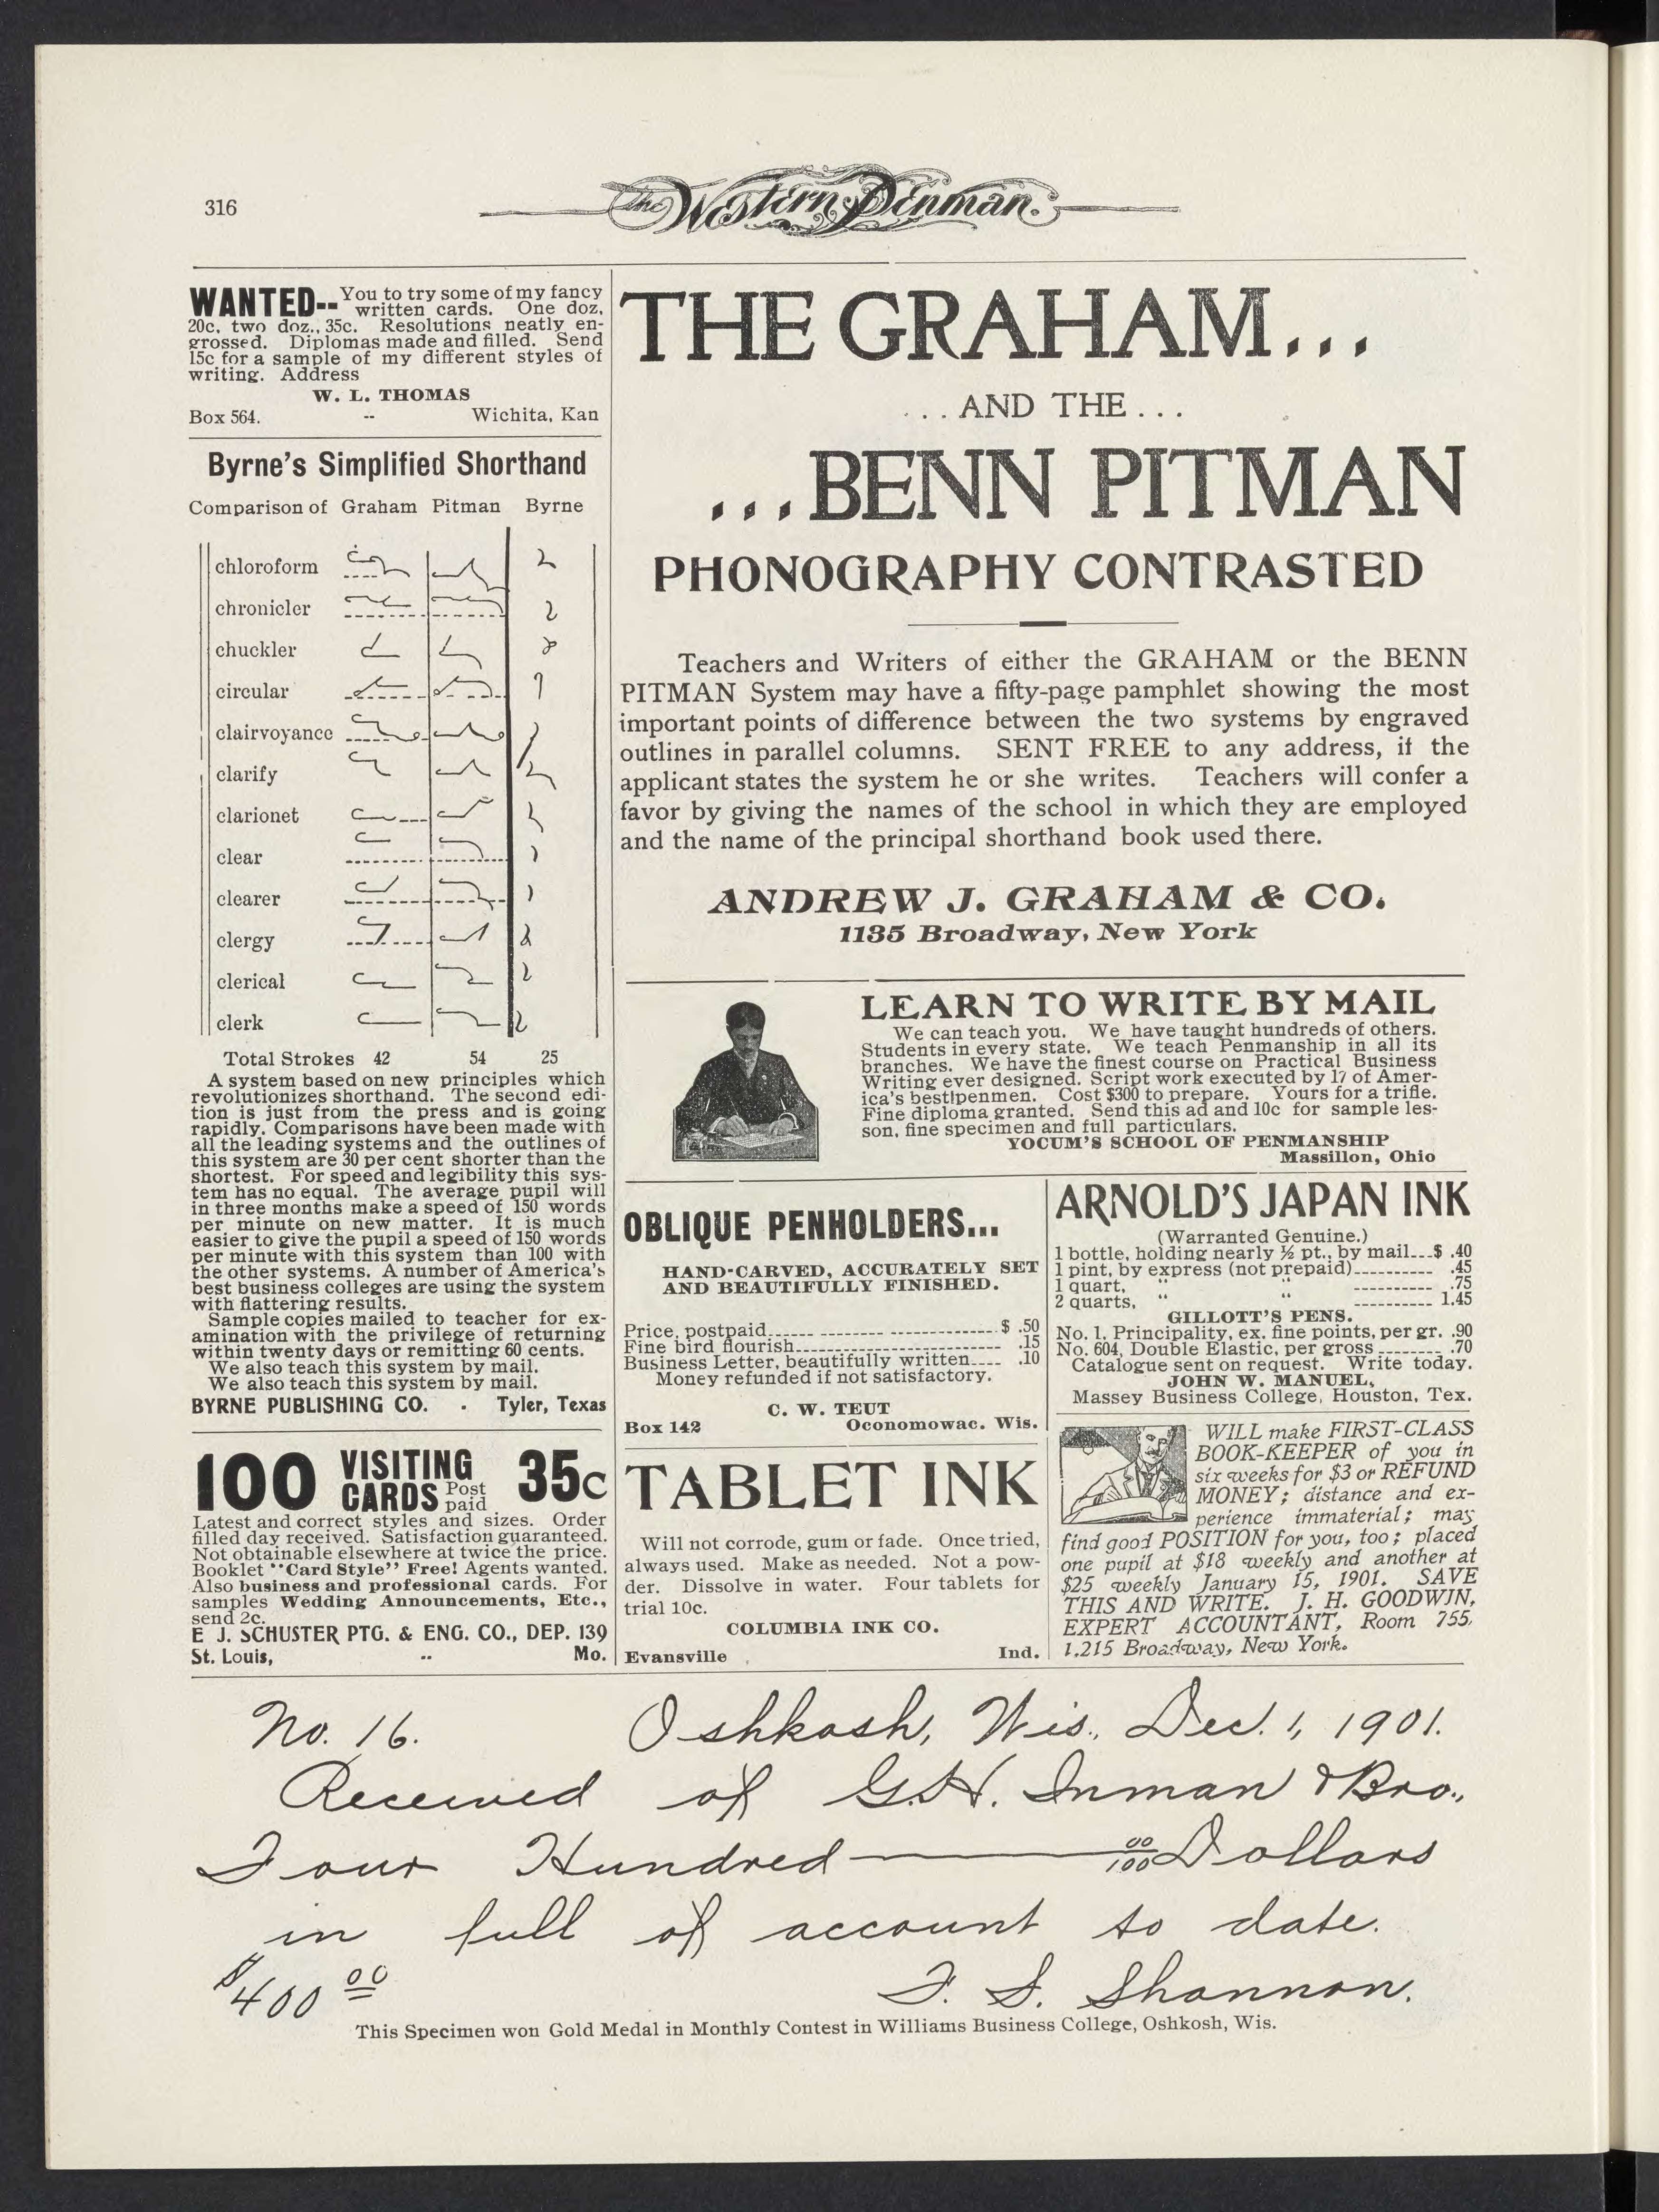 316
The Western Penman.
WANTED-- You to try some of my fancy
written cards. One doz,
20c, two doz., 35c. Resolutions neatly en-
grossed. Diplomas made and filled. Send
15c for a sample of my different styles of
writing. Address
W. L. THOMAS
Box 564. -- Wichita, Kan
Byrne's Simplified Shorthand
Comparison of Graham Pitman Byrne
chloroform
chronicler
chuckler
circular
clairvoyance
clarify
clarionet
clear
clearer
clergy
clerical
clerk
Total Strokes 42 54 25
A system based on new principles which
revolutionizes shorthand. The second edi-
tion is just from the press and is going
rapidly. Comparisons have been made with
all the leading systems and the outlines of
this system are 30 per cent shorter than the
shortest. For speed and legibility this sys-
tem has no equal. The average pupil will
in three months make a speed of 150 words
per minute on new matter. It is much
easier to give the pupil a speed of 150 words
per minute with this system than 100 with
the other systems. A number of America's
best business colleges are using the system
with flattering results.
Sample copies mailed to teacher for ex-
amination with the privilege of returning
within twenty days or remitting 60 cents.
We also teach this system by mail.
We also teach this system by mail.
BYRNE PUBLISHING CO. . Tyler, Texas
100 VISITING CARDS Post paid 35c
Latest and correct styles and sizes. Order
filled day received. Satisfaction guaranteed.
Not obtainable elsewhere at twice the price.
Booklet "Card Style" Free! Agents wanted.
Also business and professional cards. For
samples Wedding Announcements, Etc.,
send 2c.
E J. SCHUSTER PTG. & ENG. CO., DEP. 139
St. Louis, -- Mo.
THE GRAHAM...
...AND THE...
...BENN PITMAN
PHONOGRAPHY CONTRASTED
Teachers and Writers of either the GRAHAM or the BENN
PITMAN System may have a fifty-page pamphlet showing the most
important points of difference between the two systems by engraved
outlines in parallel columns. SENT FREE to any address, if the
applicant states the system he or she writes. Teachers will confer a
favor by giving the names of the school in which they are employed
and the name of the principal shorthand book used there.
ANDREW J. GRAHAM & CO.
1135 Broadway, New York
LEARN TO WRITE BY MAIL
We can teach you. We have taught hundreds of others.
Students in every state. We teach Penmanship in all its
branches. We have the finest course on Practical Business
Writing ever designed. Script work executed by 17 of Amer-
ica's best penmen. Cost $300 to prepare. Yours for a trifle.
Fine diploma granted. Send this ad and 10c for sample les-
son, fine specimen and full particulars.
YOCUM'S SCHOOL OF PENMANSHIP
Massillon, Ohio
OBLIQUE PENHOLDERS...
HAND-CARVED, ACCURATELY SET
AND BEAUTIFULLY FINISHED.
Price, postpaid $ .50
Fine bird flourish .15
Business Letter, beautifully written .10
Money refunded if not satisfactory.
C. W. TEUT
Box 142 Oconomowac. Wis.
TABLET INK
Will not corrode, gum or fade. Once tried,
always used. Make as needed. Not a pow-
der. Dissolve in water. Four tablets for
trial 10c.
COLUMBIA INK CO.
Evansville , Ind.
ARNOLD'S JAPAN INK
(Warranted Genuine.)
1 bottle, holding nearly ½ pt., by mail $ .40
1 pint, by express (not prepaid) .45
1 quart, " " .75
2 quarts, " " 1.45
GILLOTT'S PENS.
No. 1, Principality, ex. fine points, per gr. .90
No. 604, Double Elastic, per gross .70
Catalogue sent on request. Write today.
JOHN W. MANUEL,
Massey Business College, Houston, Tex.
WILL make FIRST-CLASS
BOOK-KEEPER of you in
six weeks for $3 or REFUND
MONEY; distance and ex-
perience immaterial; may
find good POSITION for you, too; placed
one pupil at $18 weekly and another at
$25 weekly January 15, 1901. SAVE
THIS AND WRITE. J. H. GOODWIN,
EXPERT ACCOUNTANT, Room 755,
1,215 Broadway, New York.
No. 16. Oshkosh, Wis., Dec. 1, 1901.
Received of G.H. Inman & Bro.,
Four Hundred 00/100 Dollars
in full of account to date.
$400 00 F. S. Shannon.
This Specimen won Gold Medal in Monthly Contest in Williams Business College, Oshkosh, Wis.